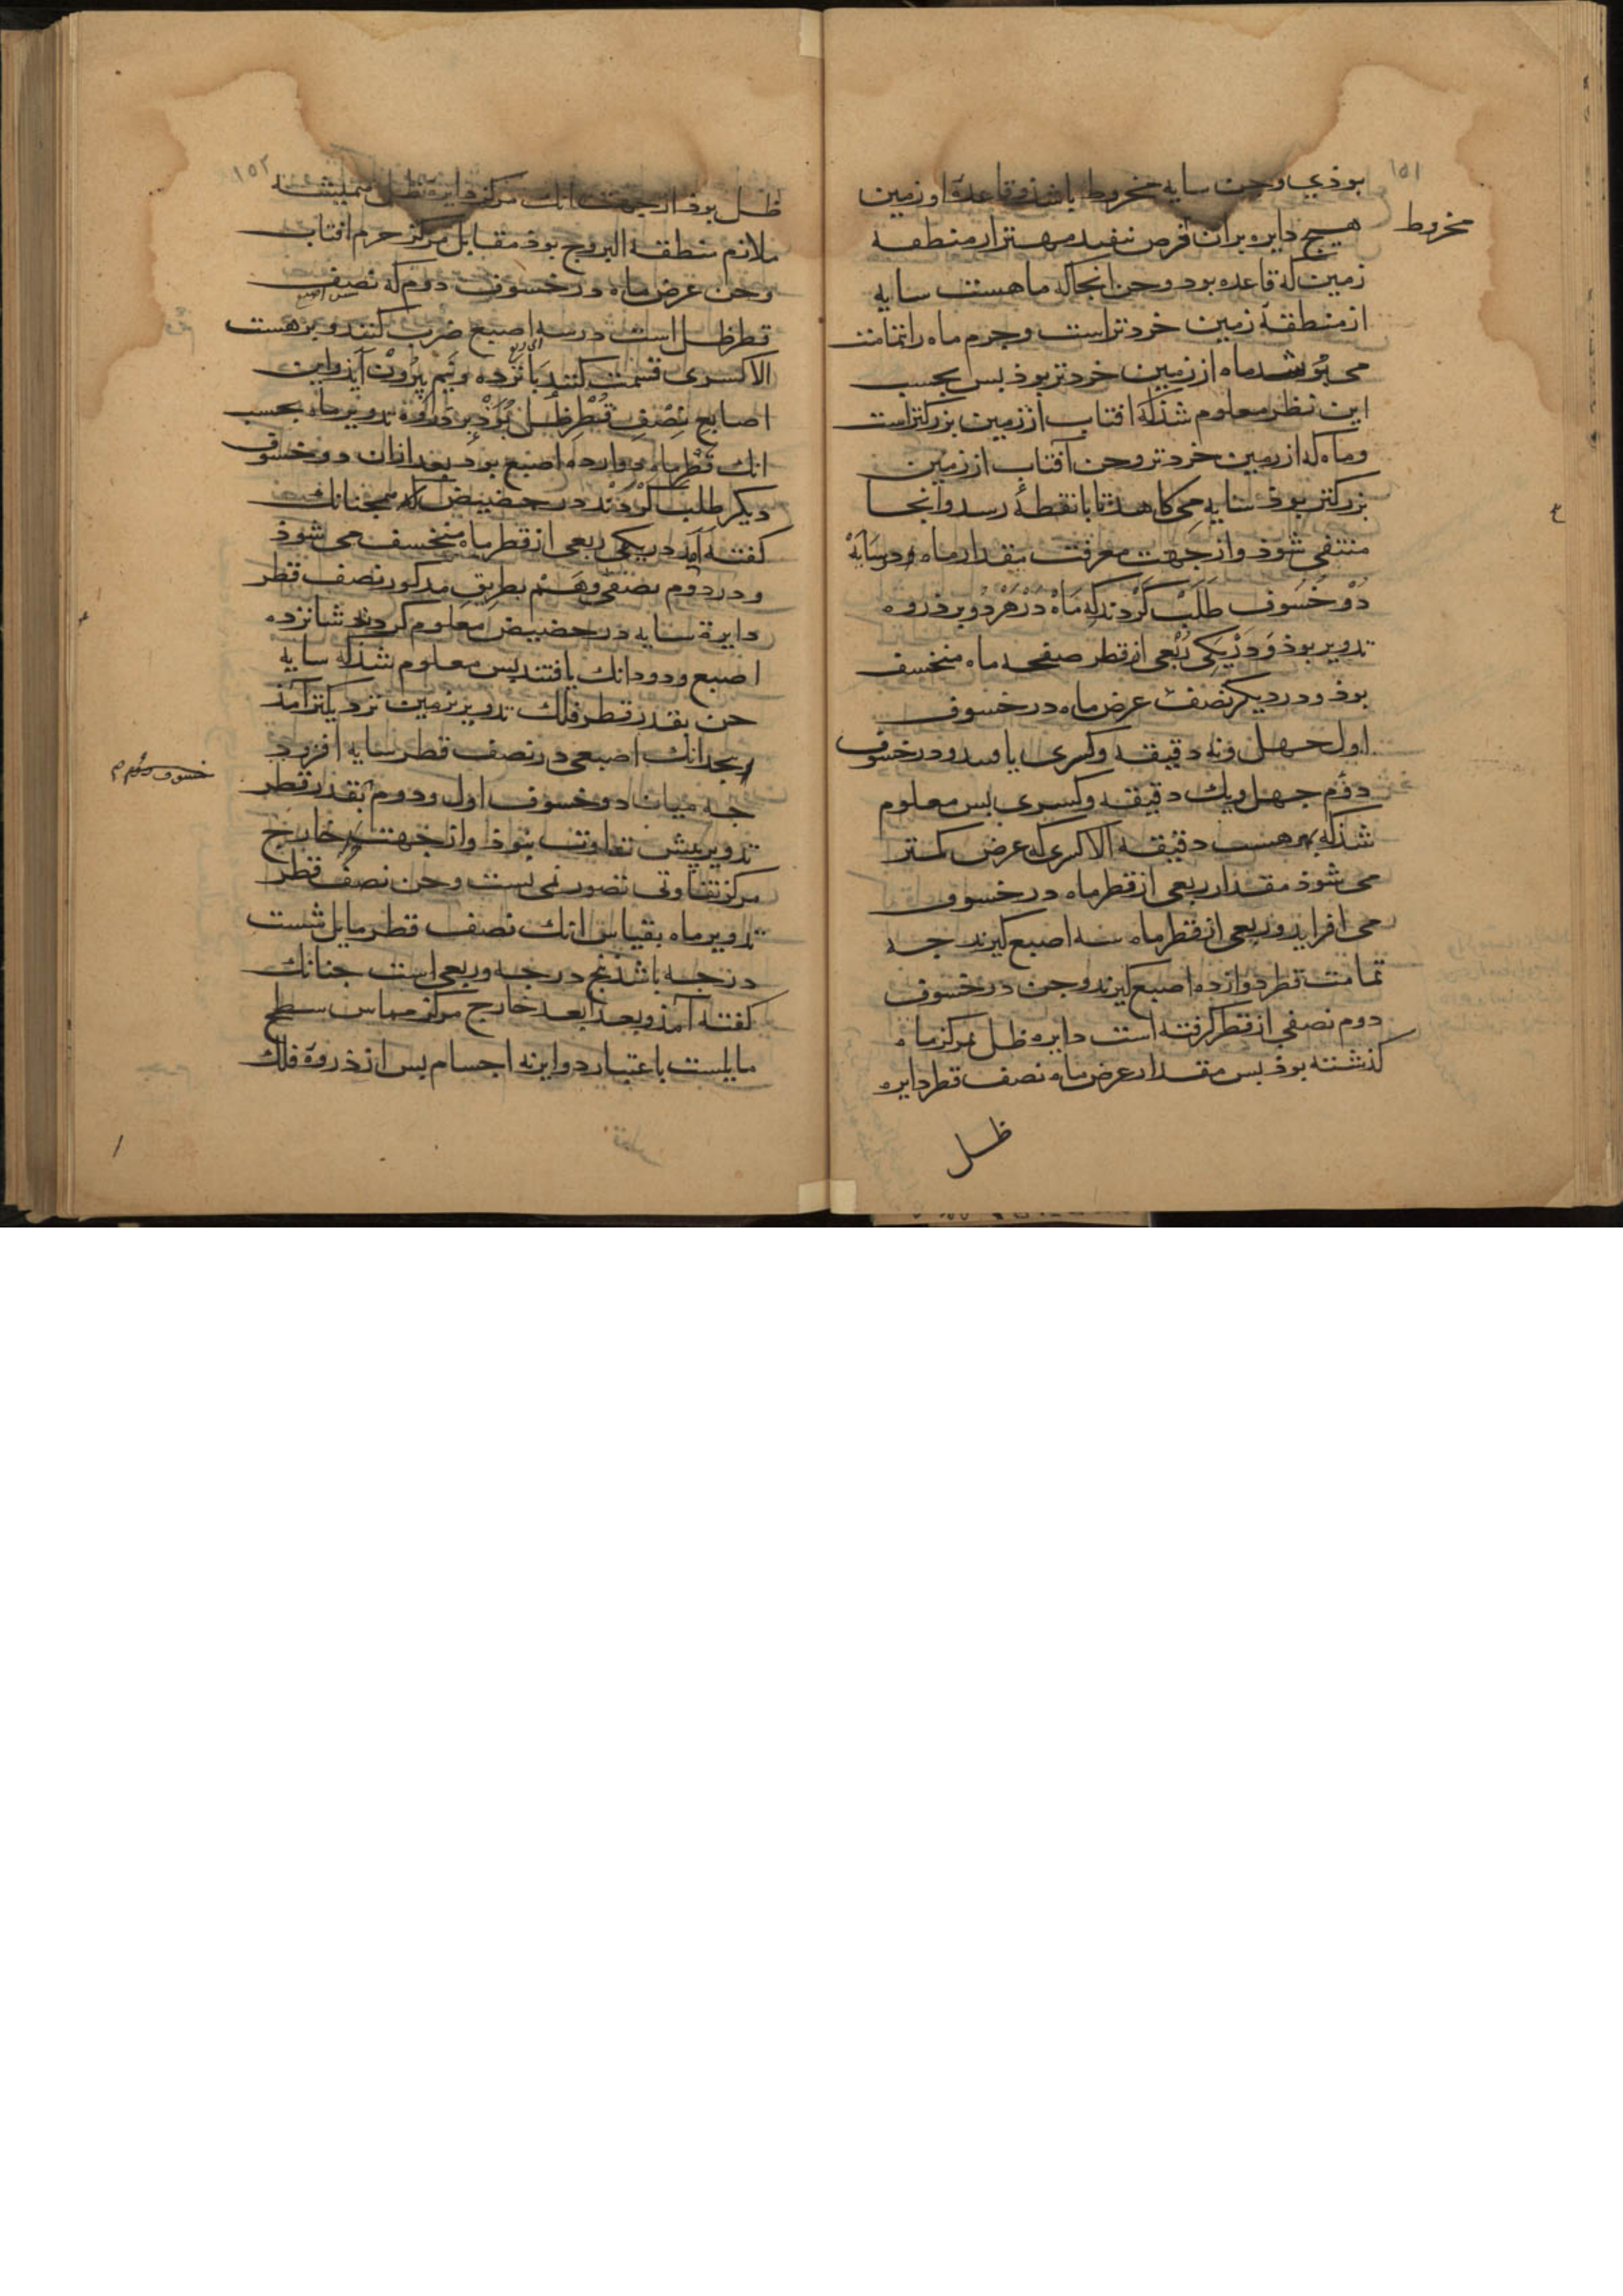 ١٥١
بوذی وجن سایه مخروط باشذ وقاعدهٔ او زمین
مخروط
هیچ دایره بران فرض نتفید مهتر از منطقه
زمین که قاعده بود وجن انجا که ماهست سایه
از منطقهٔ زمین خردتر است وجرم ماه را بتمامت
می پوشد ماه از زمین خردتر بوذ بس بحسب
این نظر معلوم شذ که افتاب از زمین بزرکتر است
وماه که از زمین خردتر وجن آفتاب از زمین
بزرکتر بوذ سایه می کاهد تا بانقطهٔ رسد وانجا
منتفی شوذ واز جهت معرفت مقدار ماه وسایه
دو خسوف طلب کردند که ماه در هر دو بر ذروه
تدویر بوذ ودر یکی ربعی از قطر صفحه ماه منخسف
بوذ ودر دیکر نصف عرض ماه در خسوف
اول جهل ونه دقیقه وکسری یافتند ودر خسوف
دوم جهل ویك دقیقه وکسری بس معلوم
شذ که بهر هست دقیقه الا کسری که عرض کمتر
می شوذ مقدار ربعی از قطر ماه در خسوف
می افزاید وربعی از قطر ماه سه اصبع کیرند جه
تمامت قطر دوازده اصبع کیرند وجن در خسوف
دوم نصفی از قطر کرفته است دایره ظل بمرکز ماه
کذشته بوذ بس مقدار عرض ماه نصف قطر دایره
ظل
١٥٢
ظل بوذ از جهت انك مرکز دایره ظل همیشه
ملازم منطقة البروج بوذ مقابل مرکز جرم افتاب
وجن عرض ماه در خسوف دوم که نصف
قطر ظل است در سه اصبع ضرب کنند وبر هست
الا کسری قسمت کنند بانزده ونیم بیرون آیذ واین
اصابع نصف قطر ظل بوذ بر ذروه تدویر ماه بحسب
انك قطر ماه دوازده اصبع بوذ بعد ازان دو خسوف
دیکر طلب کردند در حضیض که همجنانك
کفته آمد در یکی ربعی از قطر ماه منخسف می شوذ
ودر دوم نصفی وهم بطریق مذکور نصف قطر
دایرة سایه در حضیض معلوم کردند شانزده
اصبع ودو دانك یافتند بس معلوم شذ که سایه
جن بقدر قطر فلك تدویر بزمین نزدیکتر آمذ
بنجدانك اصبعی در نصف قطر سایه افزود
خسوف دوم
جه میان دو خسوف اول ودوم بقدر قطر
تدویر بیش تفاوت نبوذ واز جهت خارج
مرکز تفاوتی تصور نمی بست وجن نصف قطر
تدویر ماه بقیاس انك نصف قطر مایل شست
درجه باشذ بنج درجه وربعی است جنانك
کفته آمذ وبعد ابعد خارج مرکز مماس سطح
مایلست باعتبار دوایر نه اجسام بس از ذروة فلك